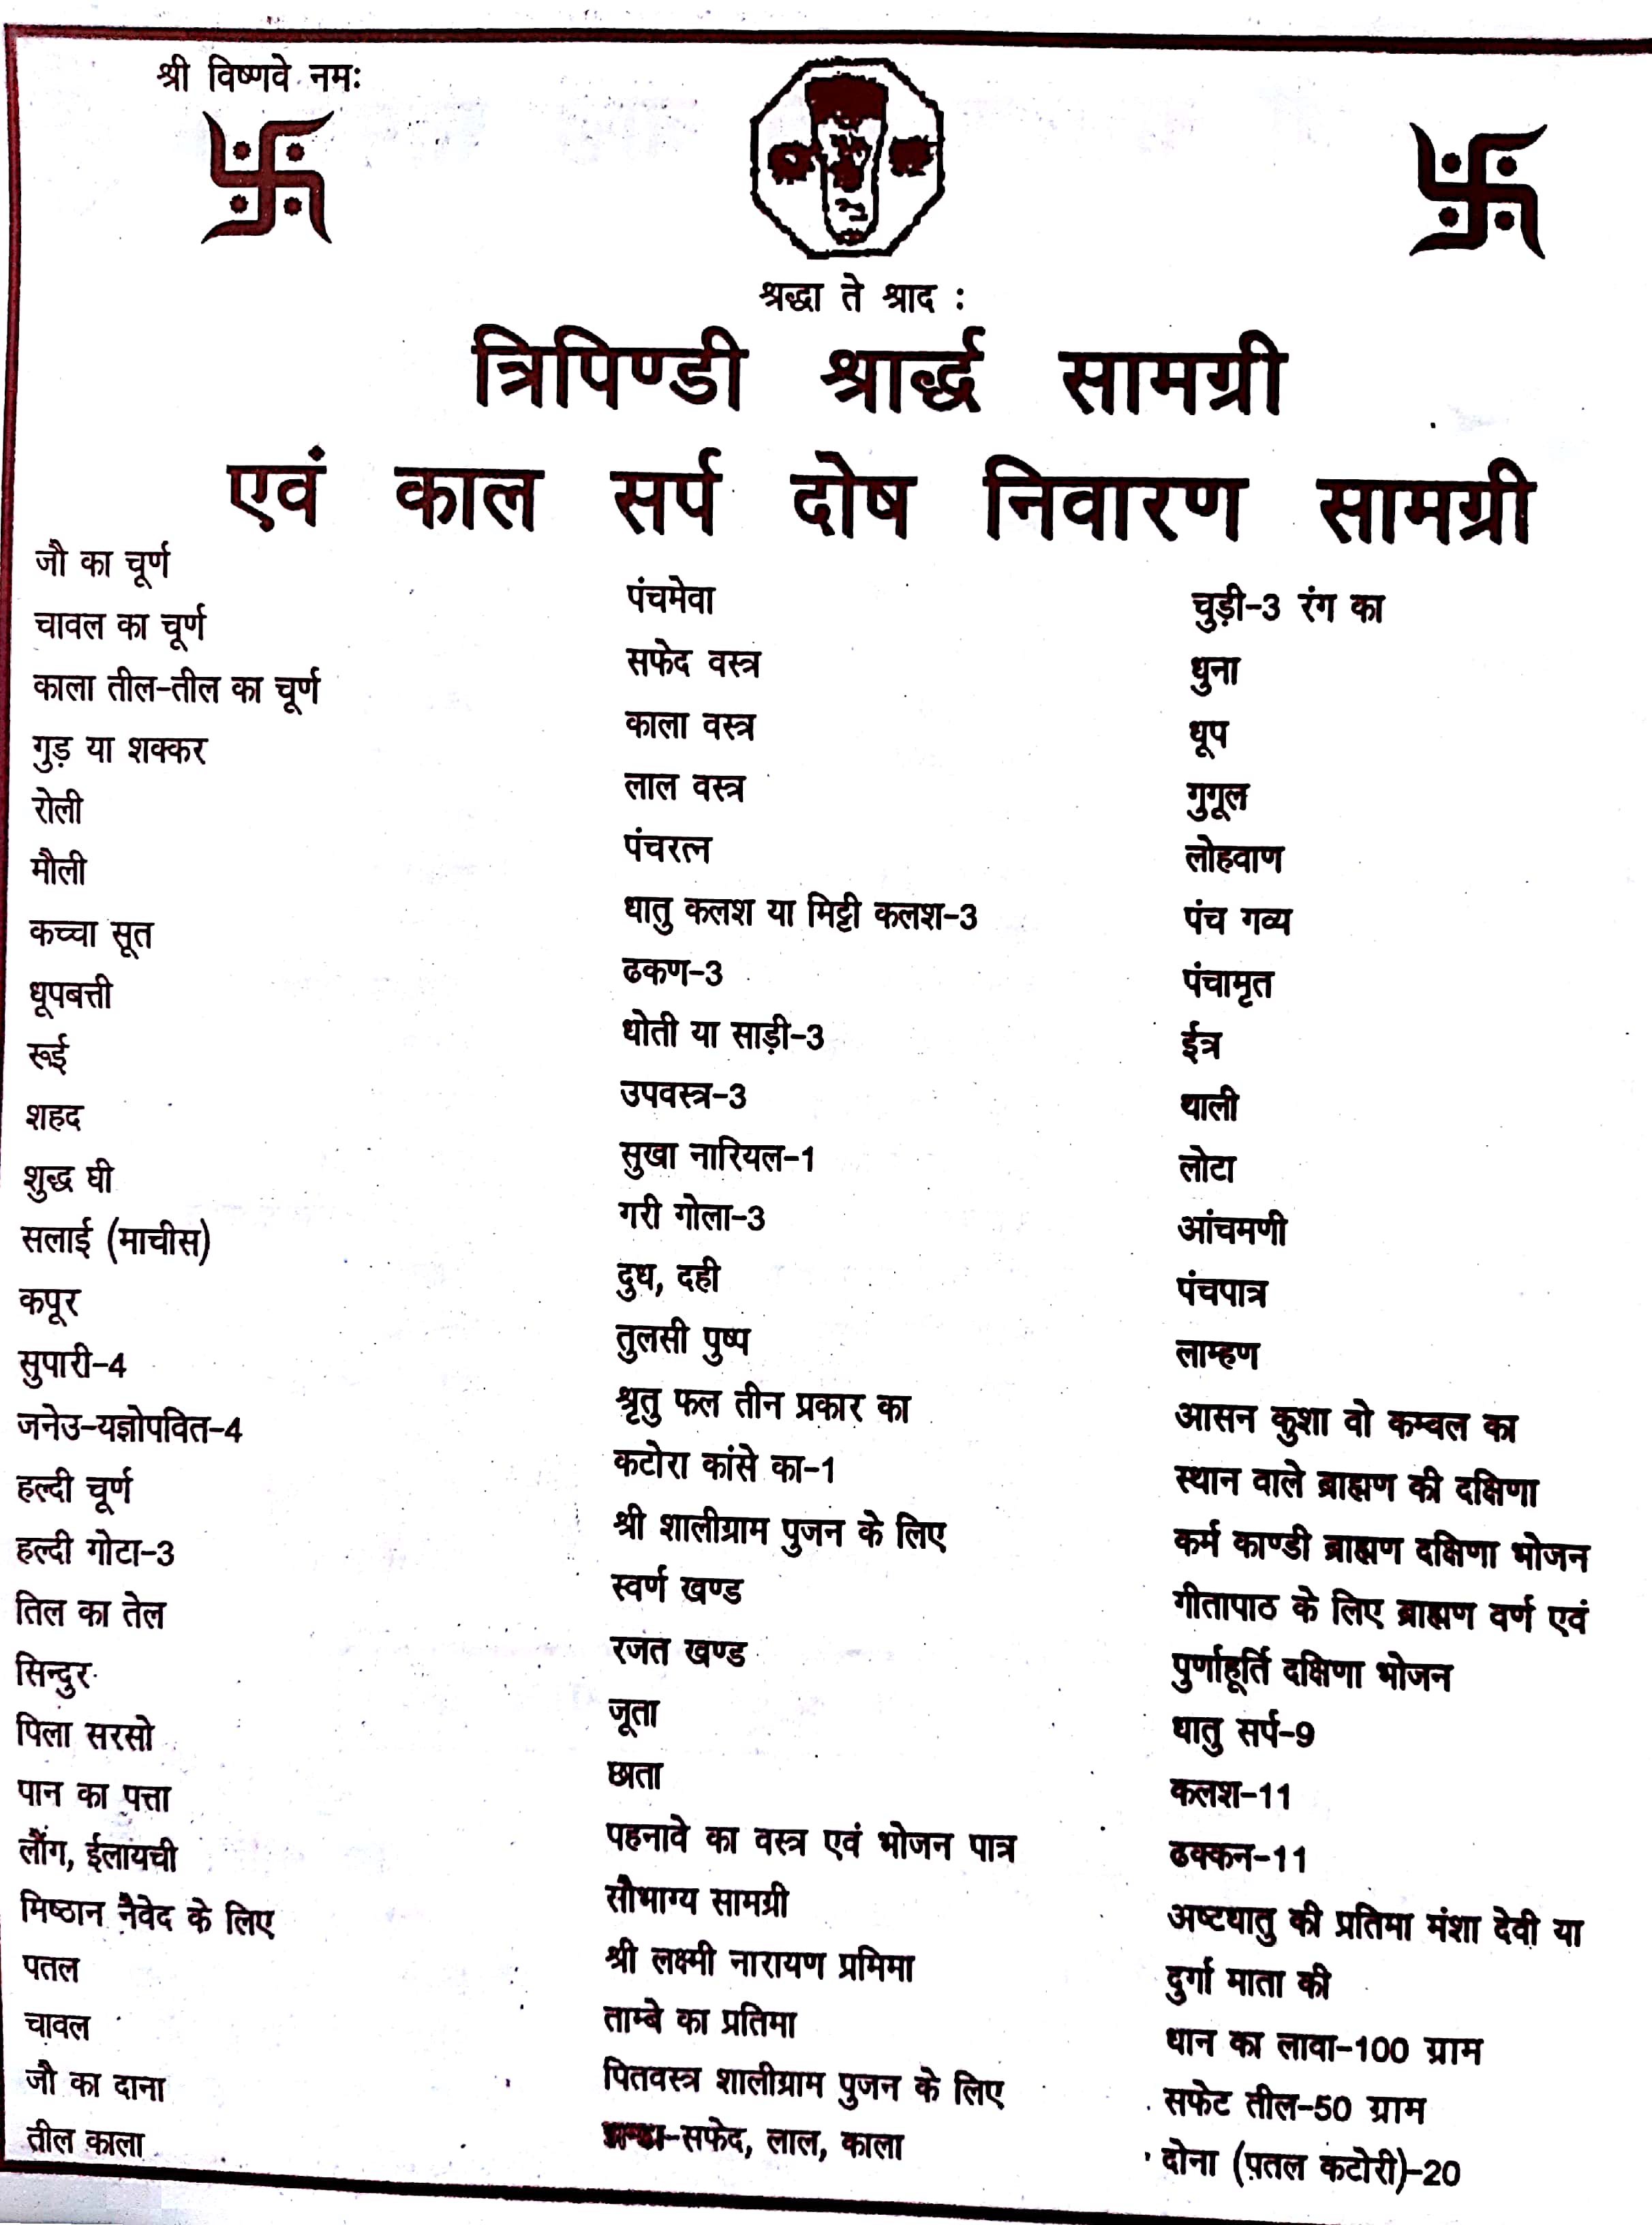 श्री विष्णवे नमः
श्रद्धा ते श्राद :
त्रिपिण्डी श्रार्द्ध सामग्री
एवं काल सर्प दोष निवारण सामग्री
जौ का चूर्ण
चावल का चूर्ण
काला तील-तील का चूर्ण
गुड़ या शक्कर
रोली
मौली
कच्चा सूत
धूपबत्ती
रूई
शहद
शुद्ध घी
सलाई (माचीस)
कपूर
सुपारी-4
जनेउ-यज्ञोपवित-4
हल्दी चूर्ण
हल्दी गोटा-3
तिल का तेल
सिन्दुर
पिला सरसो
पान का पत्ता
लौंग, ईलायची
मिष्ठान नैवेद के लिए
पतल
चावल
जौ का दाना
तील काला
पंचमेवा
सफेद वस्त्र
काला वस्त्र
लाल वस्त्र
पंचरत्न
धातु कलश या मिट्टी कलश-3
ढकण-3
धोती या साड़ी-3
उपवस्त्र-3
सुखा नारियल-1
गरी गोला-3
दुध, दही
तुलसी पुष्प
श्रृतु फल तीन प्रकार का
कटोरा कांसे का-1
श्री शालीग्राम पुजन के लिए
स्वर्ण खण्ड
रजत खण्ड
जूता
छाता
पहनावे का वस्त्र एवं भोजन पात्र
सौभाग्य सामग्री
श्री लक्ष्मी नारायण प्रमिमा
ताम्बे का प्रतिमा
पितवस्त्र शालीग्राम पुजन के लिए
-सफेद, लाल, काला
चुड़ी-3 रंग का
धुना
धूप
गुगूल
लोहवाण
पंच गव्य
पंचामृत
ईत्र
थाली
लोटा
आंचमणी
पंचपात्र
लाम्हण
आसन कुशा वो कम्वल का
स्थान वाले ब्राह्मण की दक्षिणा
कर्म काण्डी ब्राह्मण दक्षिणा भोजन
गीतापाठ के लिए ब्राह्मण वर्ण एवं
पुर्णाहूर्ति दक्षिणा भोजन
धातु सर्प-9
कलश-11
ढक्कन-11
अष्टधातु की प्रतिमा मंशा देवी या
दुर्गा माता की
धान का लावा-100 ग्राम
सफेट तील-50 ग्राम
दोना (पतल कटोरी)-20